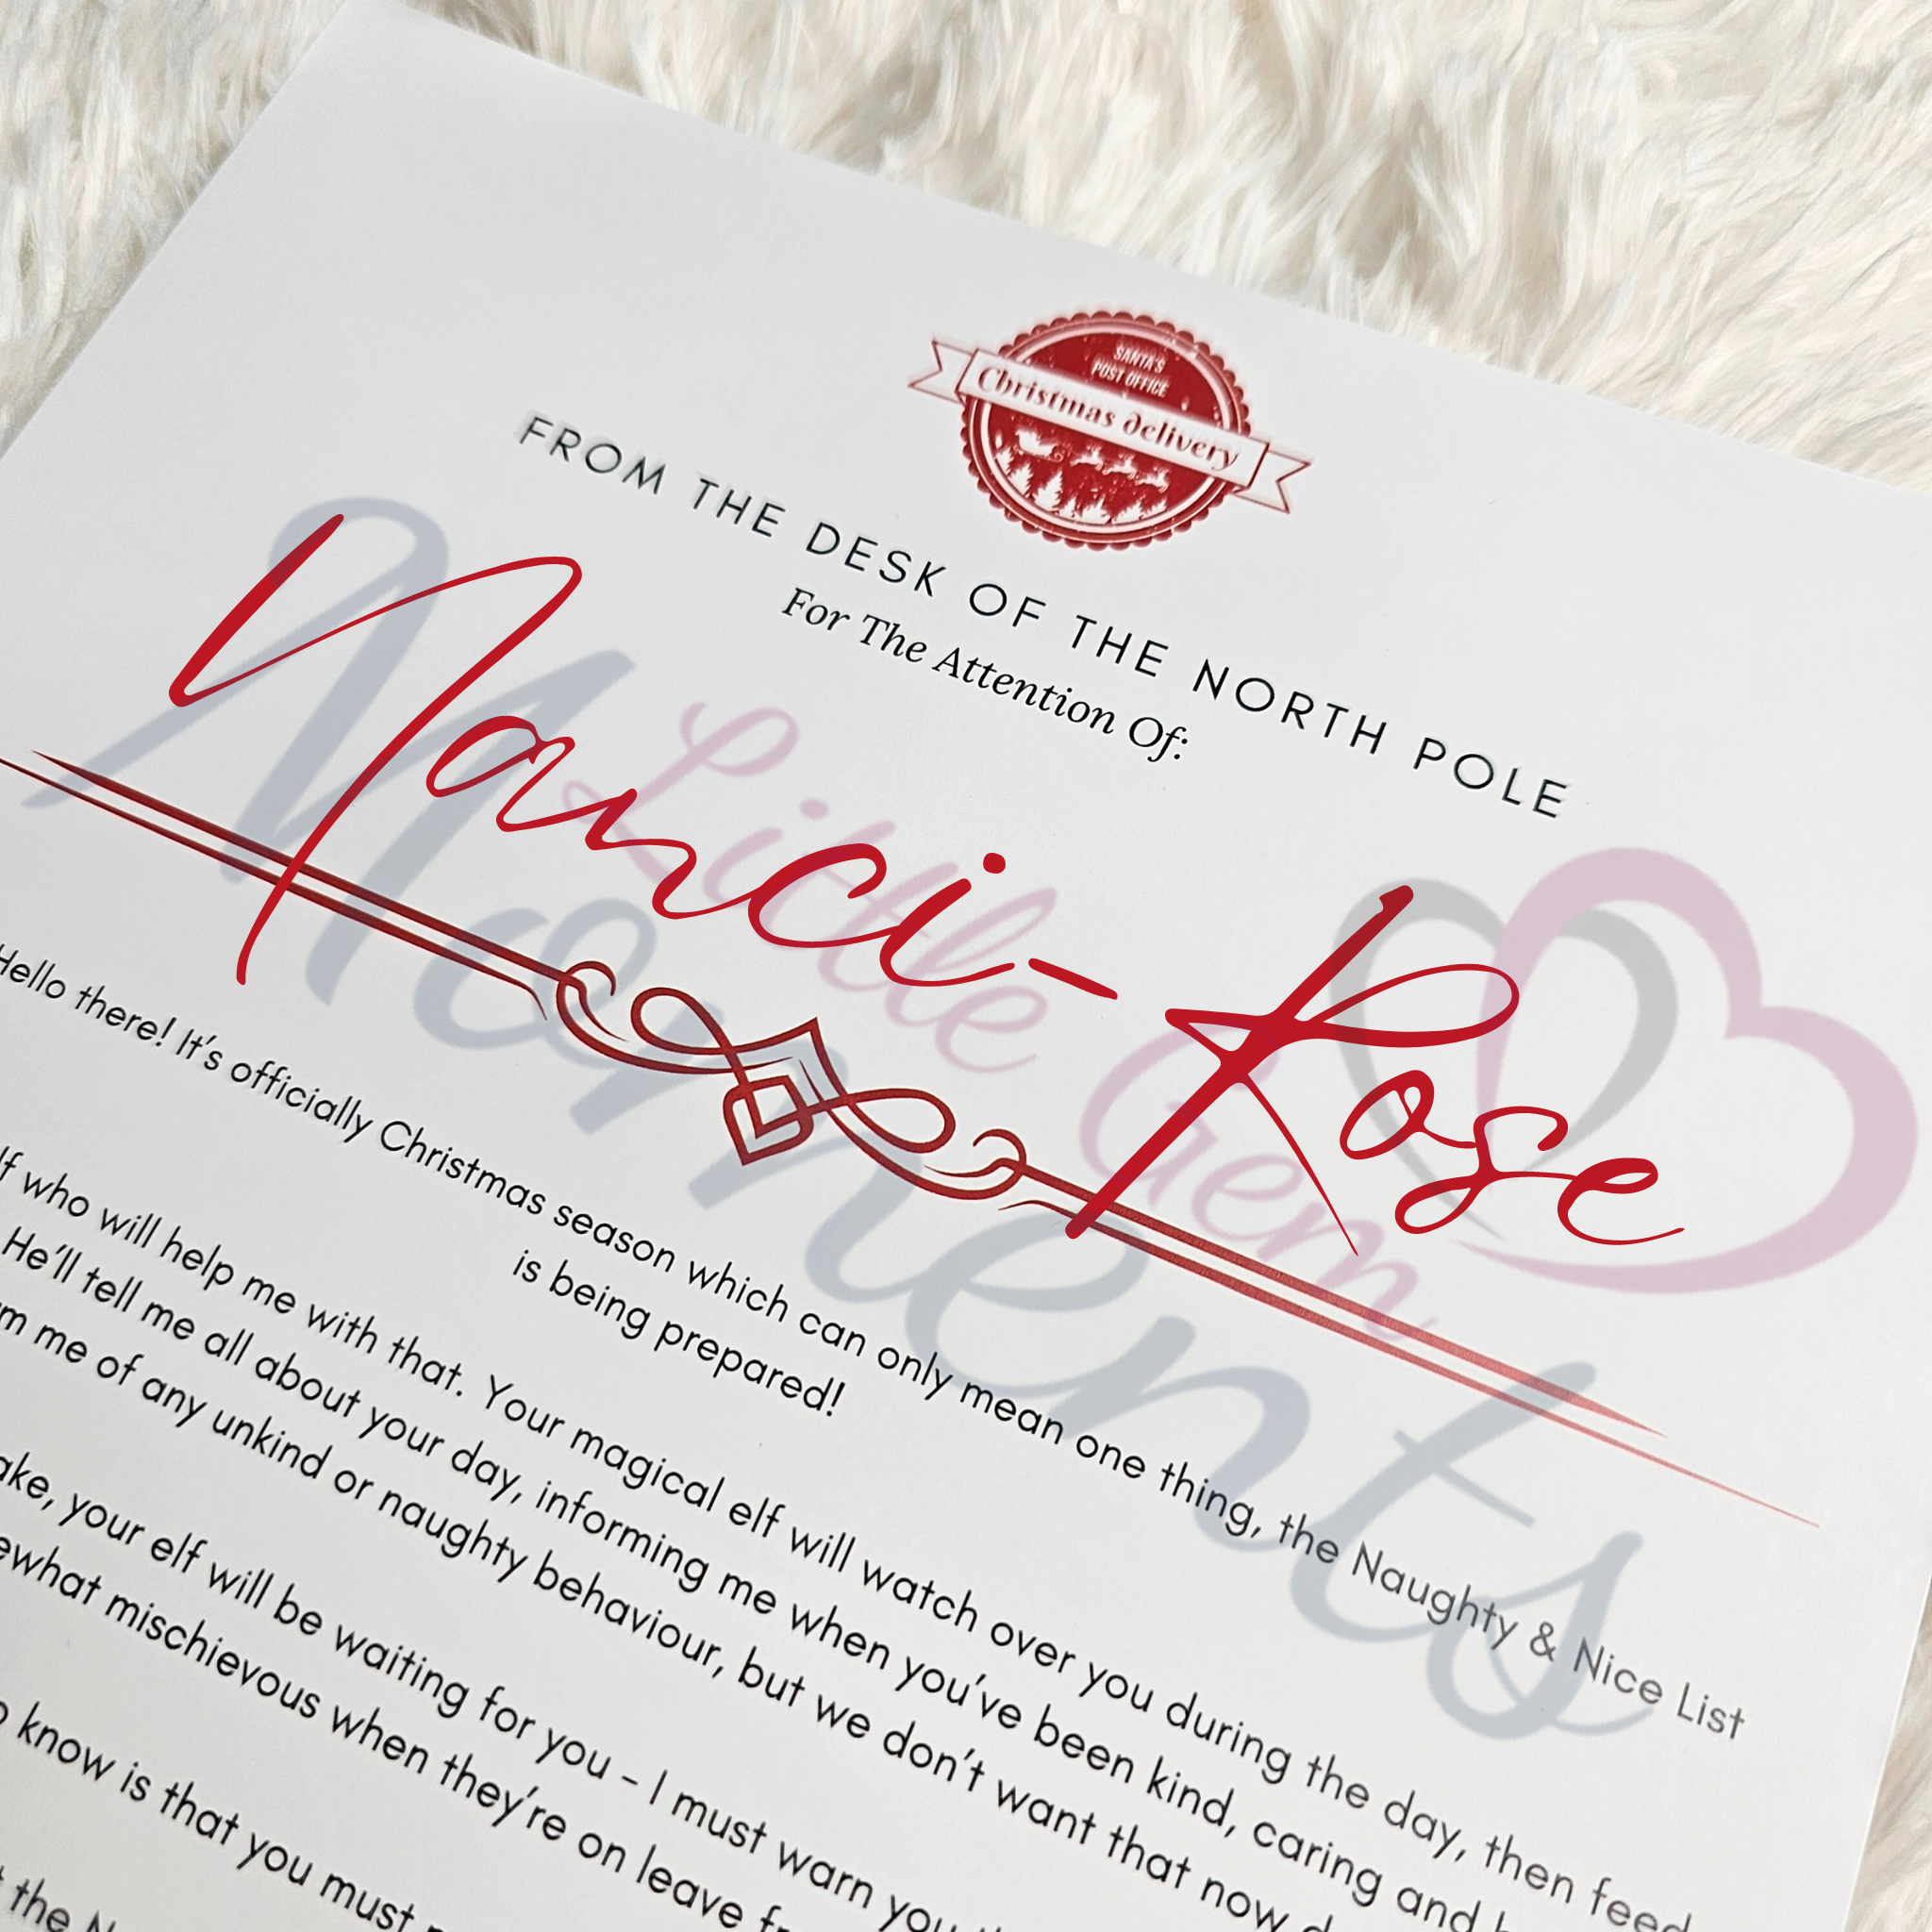 SANTA'S
POST OFFICE
Christmas delivery
FROM THE DESK OF THE NORTH POLE
For The Attention Of:
Nanci-Rose
Little Gem
Moments
Hello there! It's officially Christmas season which can only mean one thing, the Naughty & Nice List
is being prepared!
who will help me with that. Your magical elf will watch over you during the day, then feed
He'll tell me all about your day, informing me when you've been kind, caring and
me of any unkind or naughty behaviour, but we don't want that now
your elf will be waiting for you – I must warn you
mischievous when they're on leave
know is that you must
the